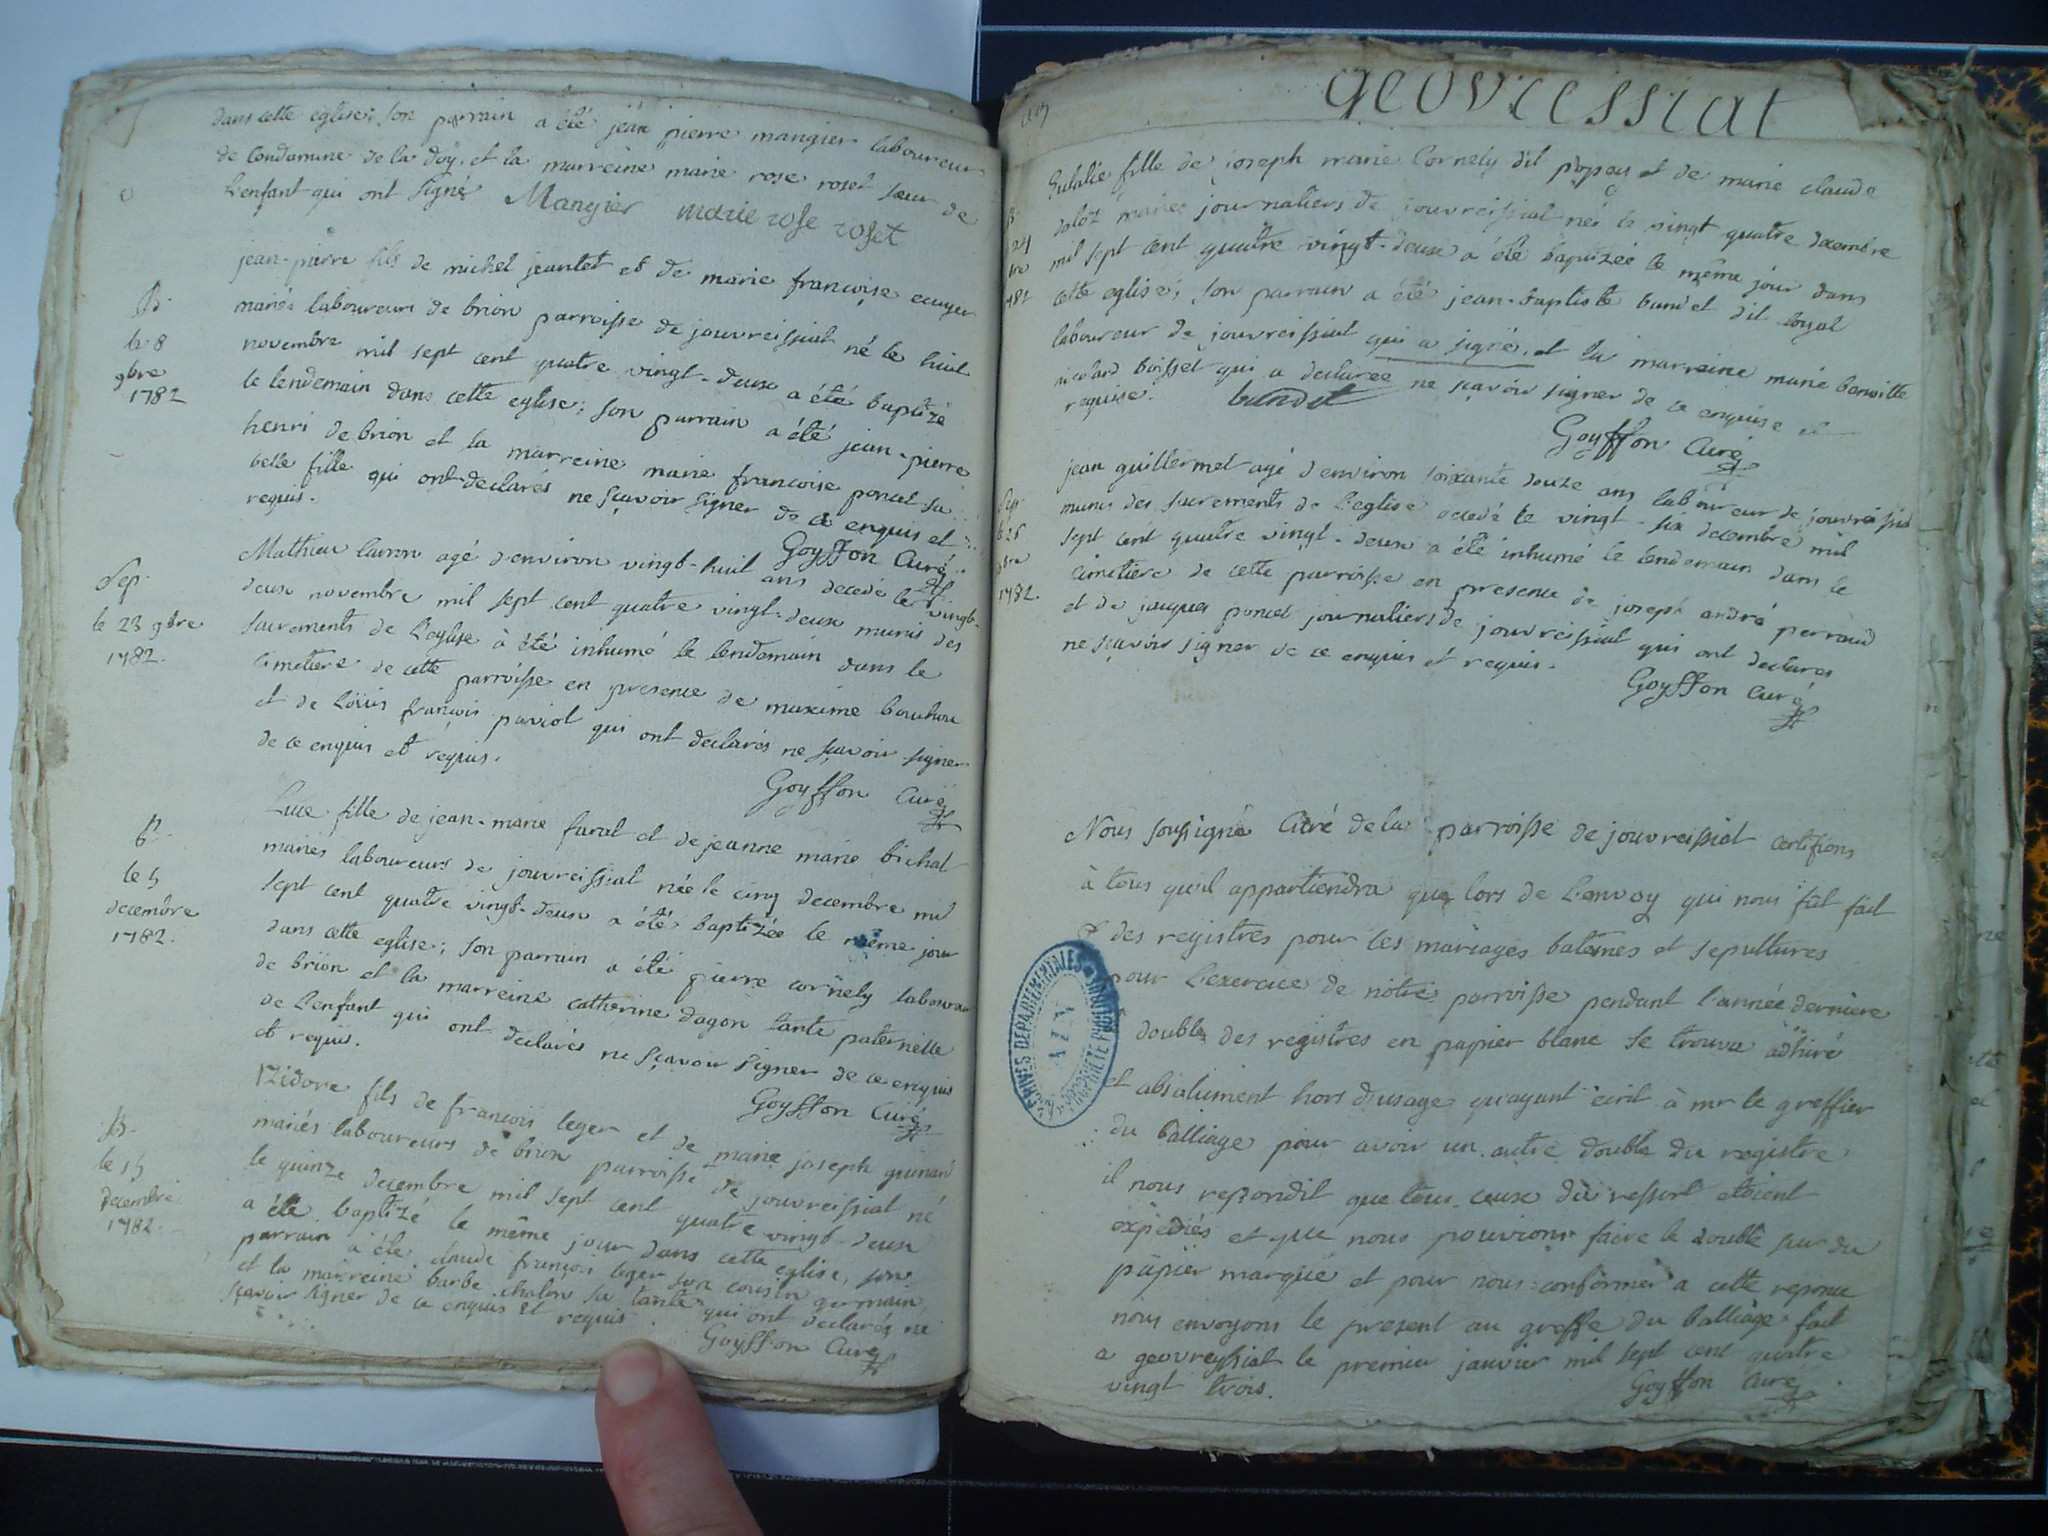 dans cette eglise; son parrain a été jean pierre mangier laboureur
de Condamine de la doÿ, et la marreine marie rose roset sœur de
L'enfant qui ont signé Mangier marie rose roset
B.
le 8
9bre
1782
jean-pierre fils de michel jeantet et de marie francoise ecuyer
mariés laboureurs de brion parroisse de jouvreissiat né le huit
novembre mil sept cent quatre vingt-deux a été baptizé
le lendemain dans cette eglise; son parrain a été jean-pierre
henri de brion et la marreine marie francoise poncet sa
belle fille qui ont declarés ne sçavoir signer de ce enquis et
requis.
Goyffon Curé
Sep.
le 23 9bre
1782.
Mathieu agé d'environ vingt-huit ans decedé le vingt-
deux novembre mil sept cent quatre vingt-deux munis des
sacrements de L'eglise à été inhumé le lendemain dans le
cimetiere de cette parroisse en presence de maxime
et de Loüis françois paviot qui ont declarés ne sçavoir signer
de ce enquis et requis.
Goyffon Curé
B.
le 5
decembre
1782.
Luce fille de jean-marie furat et de jeanne marie bichat
mariés laboureurs de jouvreissiat née le cinq decembre mil
sept cent quatre vingt-deux a été baptizée le même jour
dans cette eglise; son parrain a été pierre cornely laboureur
de brion et la marreine catherine dagon tante paternelle
de L'enfant qui ont declarés ne sçavoir signer de ce enquis
et requis.
Goyffon Curé
B.
le 15
decembre
1782.
Izidore fils de francois leger et de marie joseph guinard
mariés laboureurs de brion parroisse de jouvreissiat né
le quinze decembre mil sept cent quatre vingt-deux
a été baptizé le même jour dans cette eglise, son
parrain a été claude françois leger son cousin germain
et la marreine barbe chalon sa tante qui ont declarés ne
sçavoir signer de ce enquis et requis.
Goyffon Curé
geovressiat
B.
24
1782
Eulalie fille de joseph marie Cornely dit popay et de marie claude
mariés journaliers de jouvreissiat née le vingt quatre decembre
mil sept cent quatre vingt-deux a été baptizée le même jour dans
cette eglise; son parrain a été jean-baptiste bandet dit loyal
laboureur de jouvreissiat qui a signé, et la marreine marie benoitte
nicolard boisset qui a declarée ne sçavoir signer de ce enquise et
requise. bandet
Goyffon Curé
Sep
le 26
xbre
1782.
jean guillermet agé d'environ soixante douze ans laboureur de jouvreissiat
munis des sacrements de L'eglise decedé le vingt-six decembre mil
sept cent quatre vingt-deux a été inhumé le lendemain dans le
cimetiere de cette parroisse en presence de joseph andré perraud
et de jacques poncet journaliers de jouvreissiat qui ont declarés
ne sçavoir signer de ce enquis et requis.
Goyffon Curé
Nous soussigné Curé de la parroisse de jouvreissiat certifions
à tous qu'il appartiendra que lors de L'envoy qui nous fût fait
des registres pour les mariages batêmes et sepultures
pour L'exercice de nôtre parroisse pendant l'année derniere
double des registres en papier blanc se trouva adhiré
et absolument hors d'usage qu'ayant écrit à mr le greffier
du balliage pour avoir un autre double du registre
il nous repondit que tous ceux du ressort étoient
expediés et que nous pouvions faire le double sur du
papier marqué et pour nous conformer a cette reponse
nous envoyons le present au greffe du balliage fait
a geovreyssiat le premier janvier mil sept cent quatre
vingt trois.
Goyffon Curé
ARCHIVES DÉPARTEMENTALES
AIN